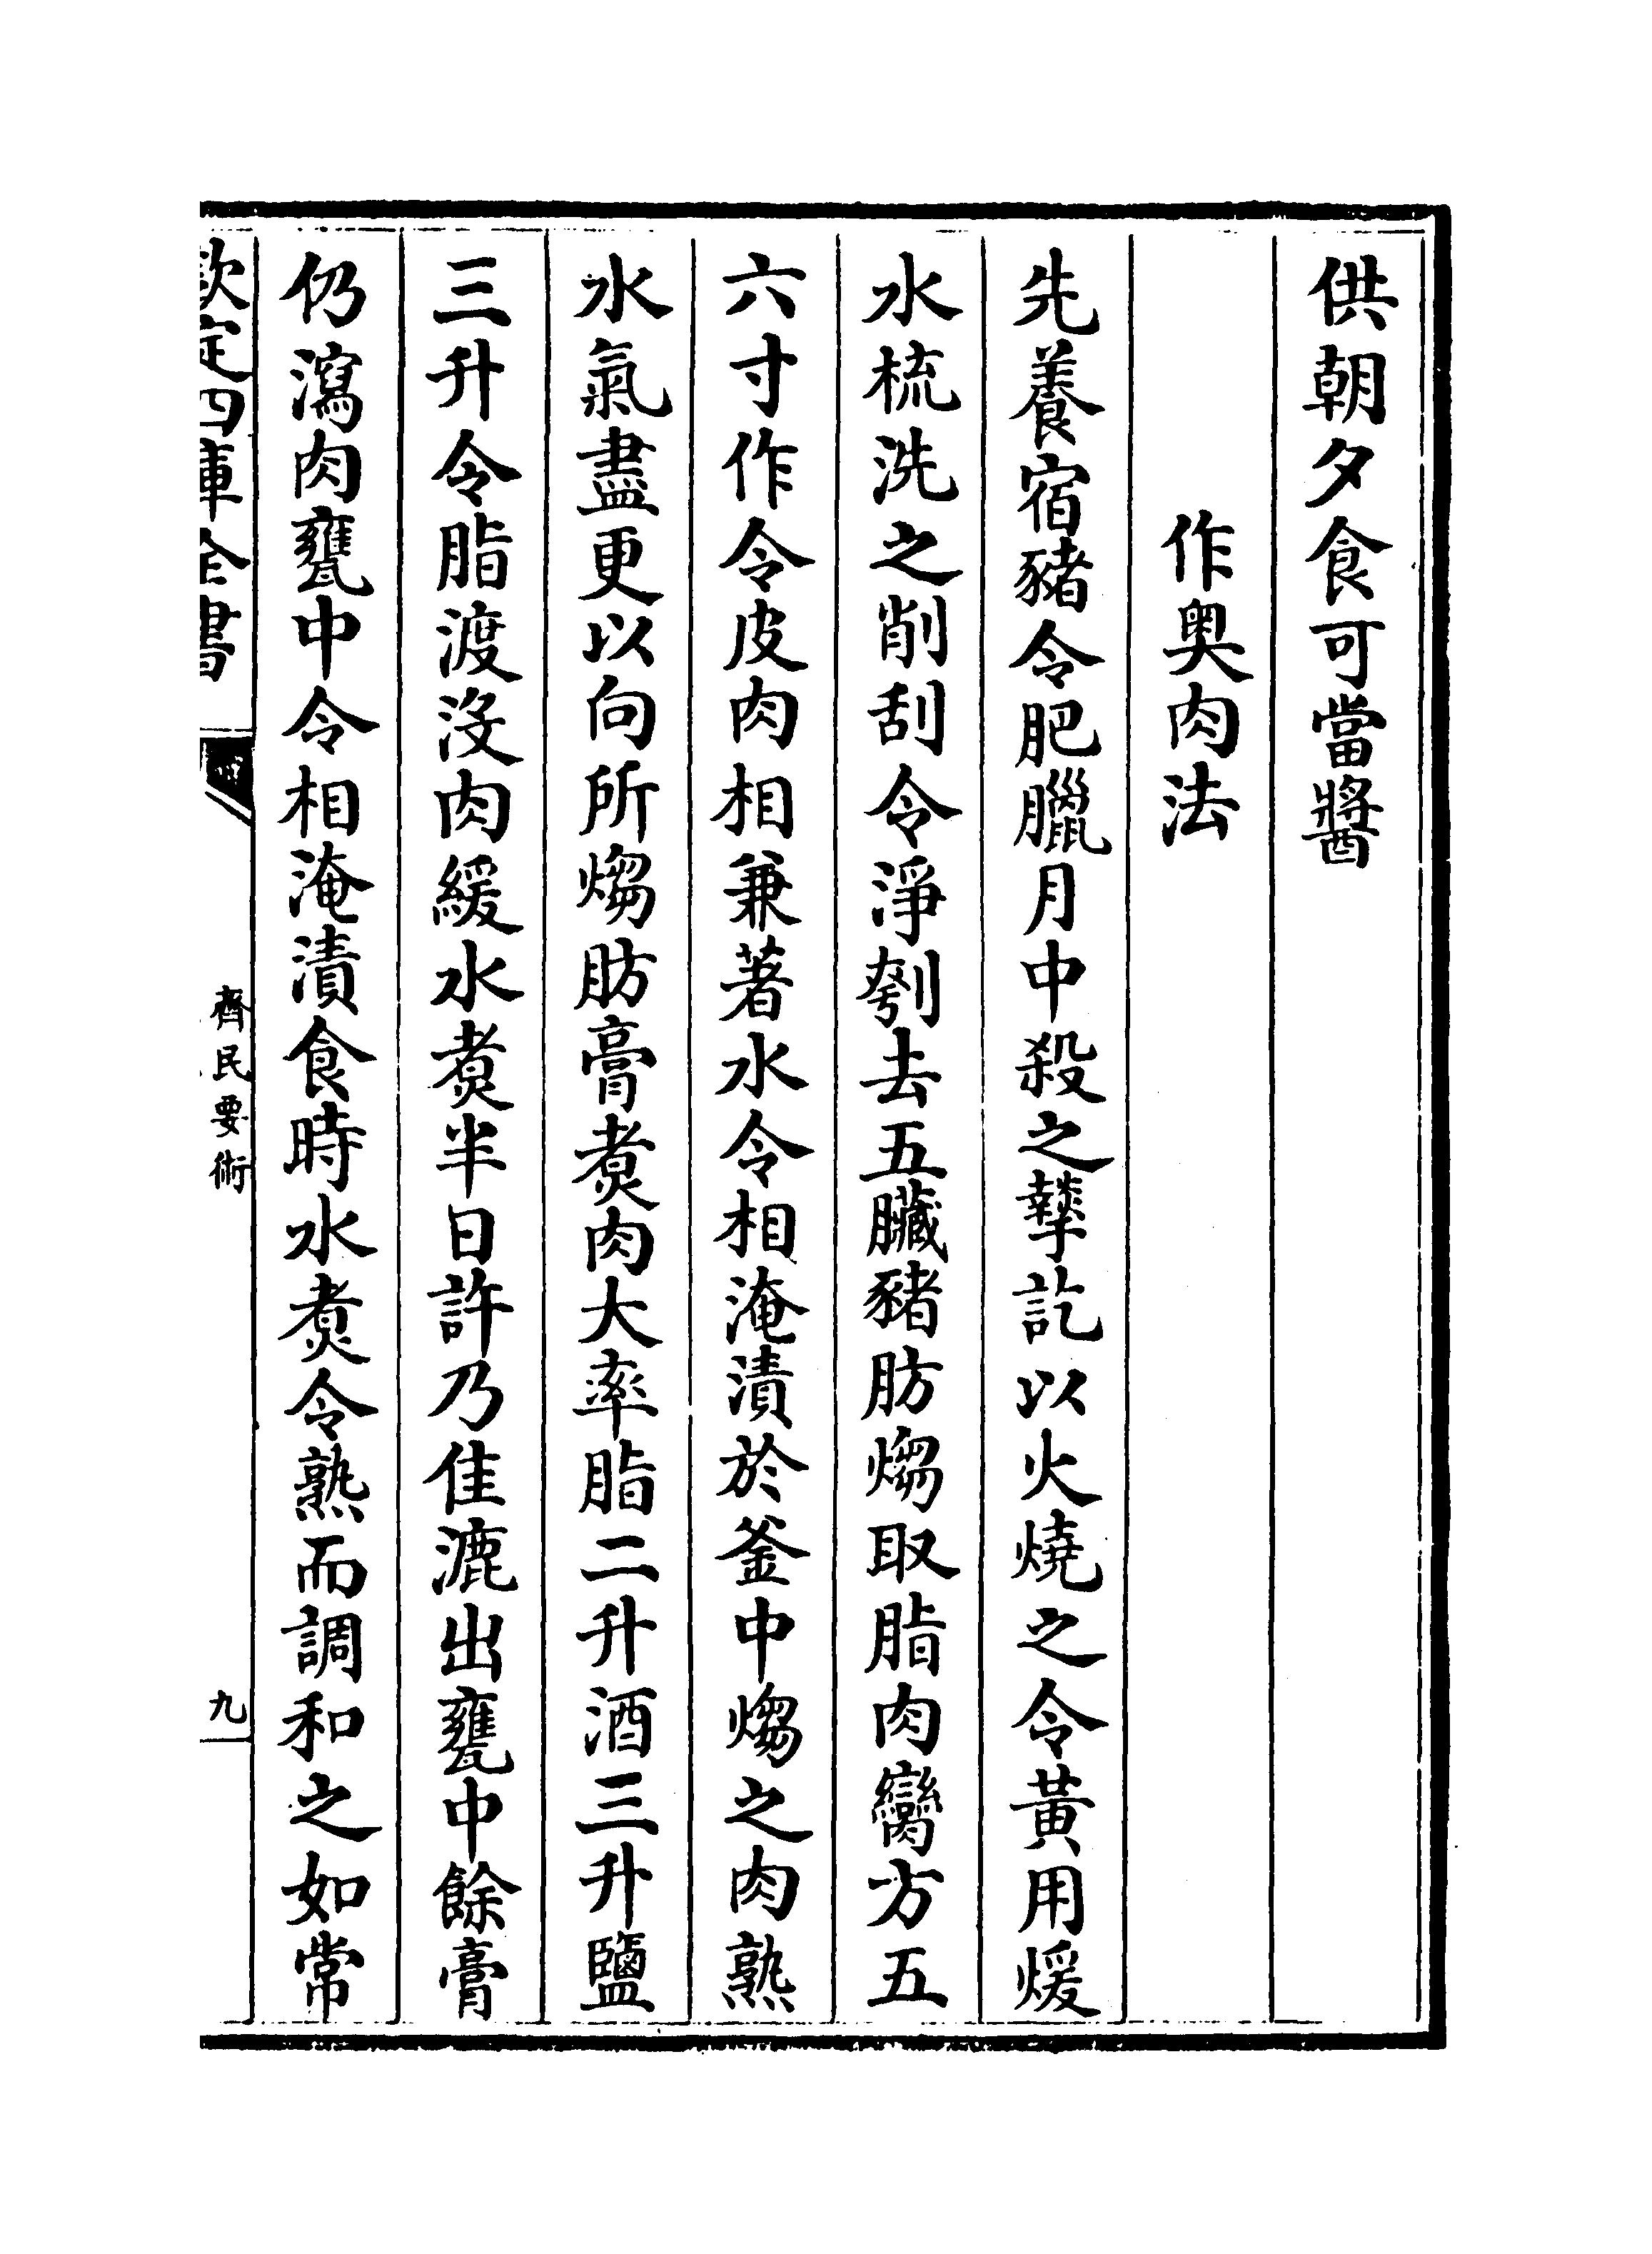 供朝夕食可當醬
作奥肉法
先養宿豬令肥臘月中殺之㓻訖以火燒之令黃用煖
水梳洗之削刮令淨刳去五臟豬肪煼取脂肉臠方五
六寸作令皮肉相兼著水令相淹漬於釜中煼之肉熟
水氣盡更以向所煼肪膏煮肉大率脂二升酒三升鹽
三升令脂渡沒肉緩水煮半日許乃佳漉出甕中餘膏
仍瀉肉甕中令相淹漬食時水煮令熟而調和之如常
欽定四庫全書
齊民要術
九